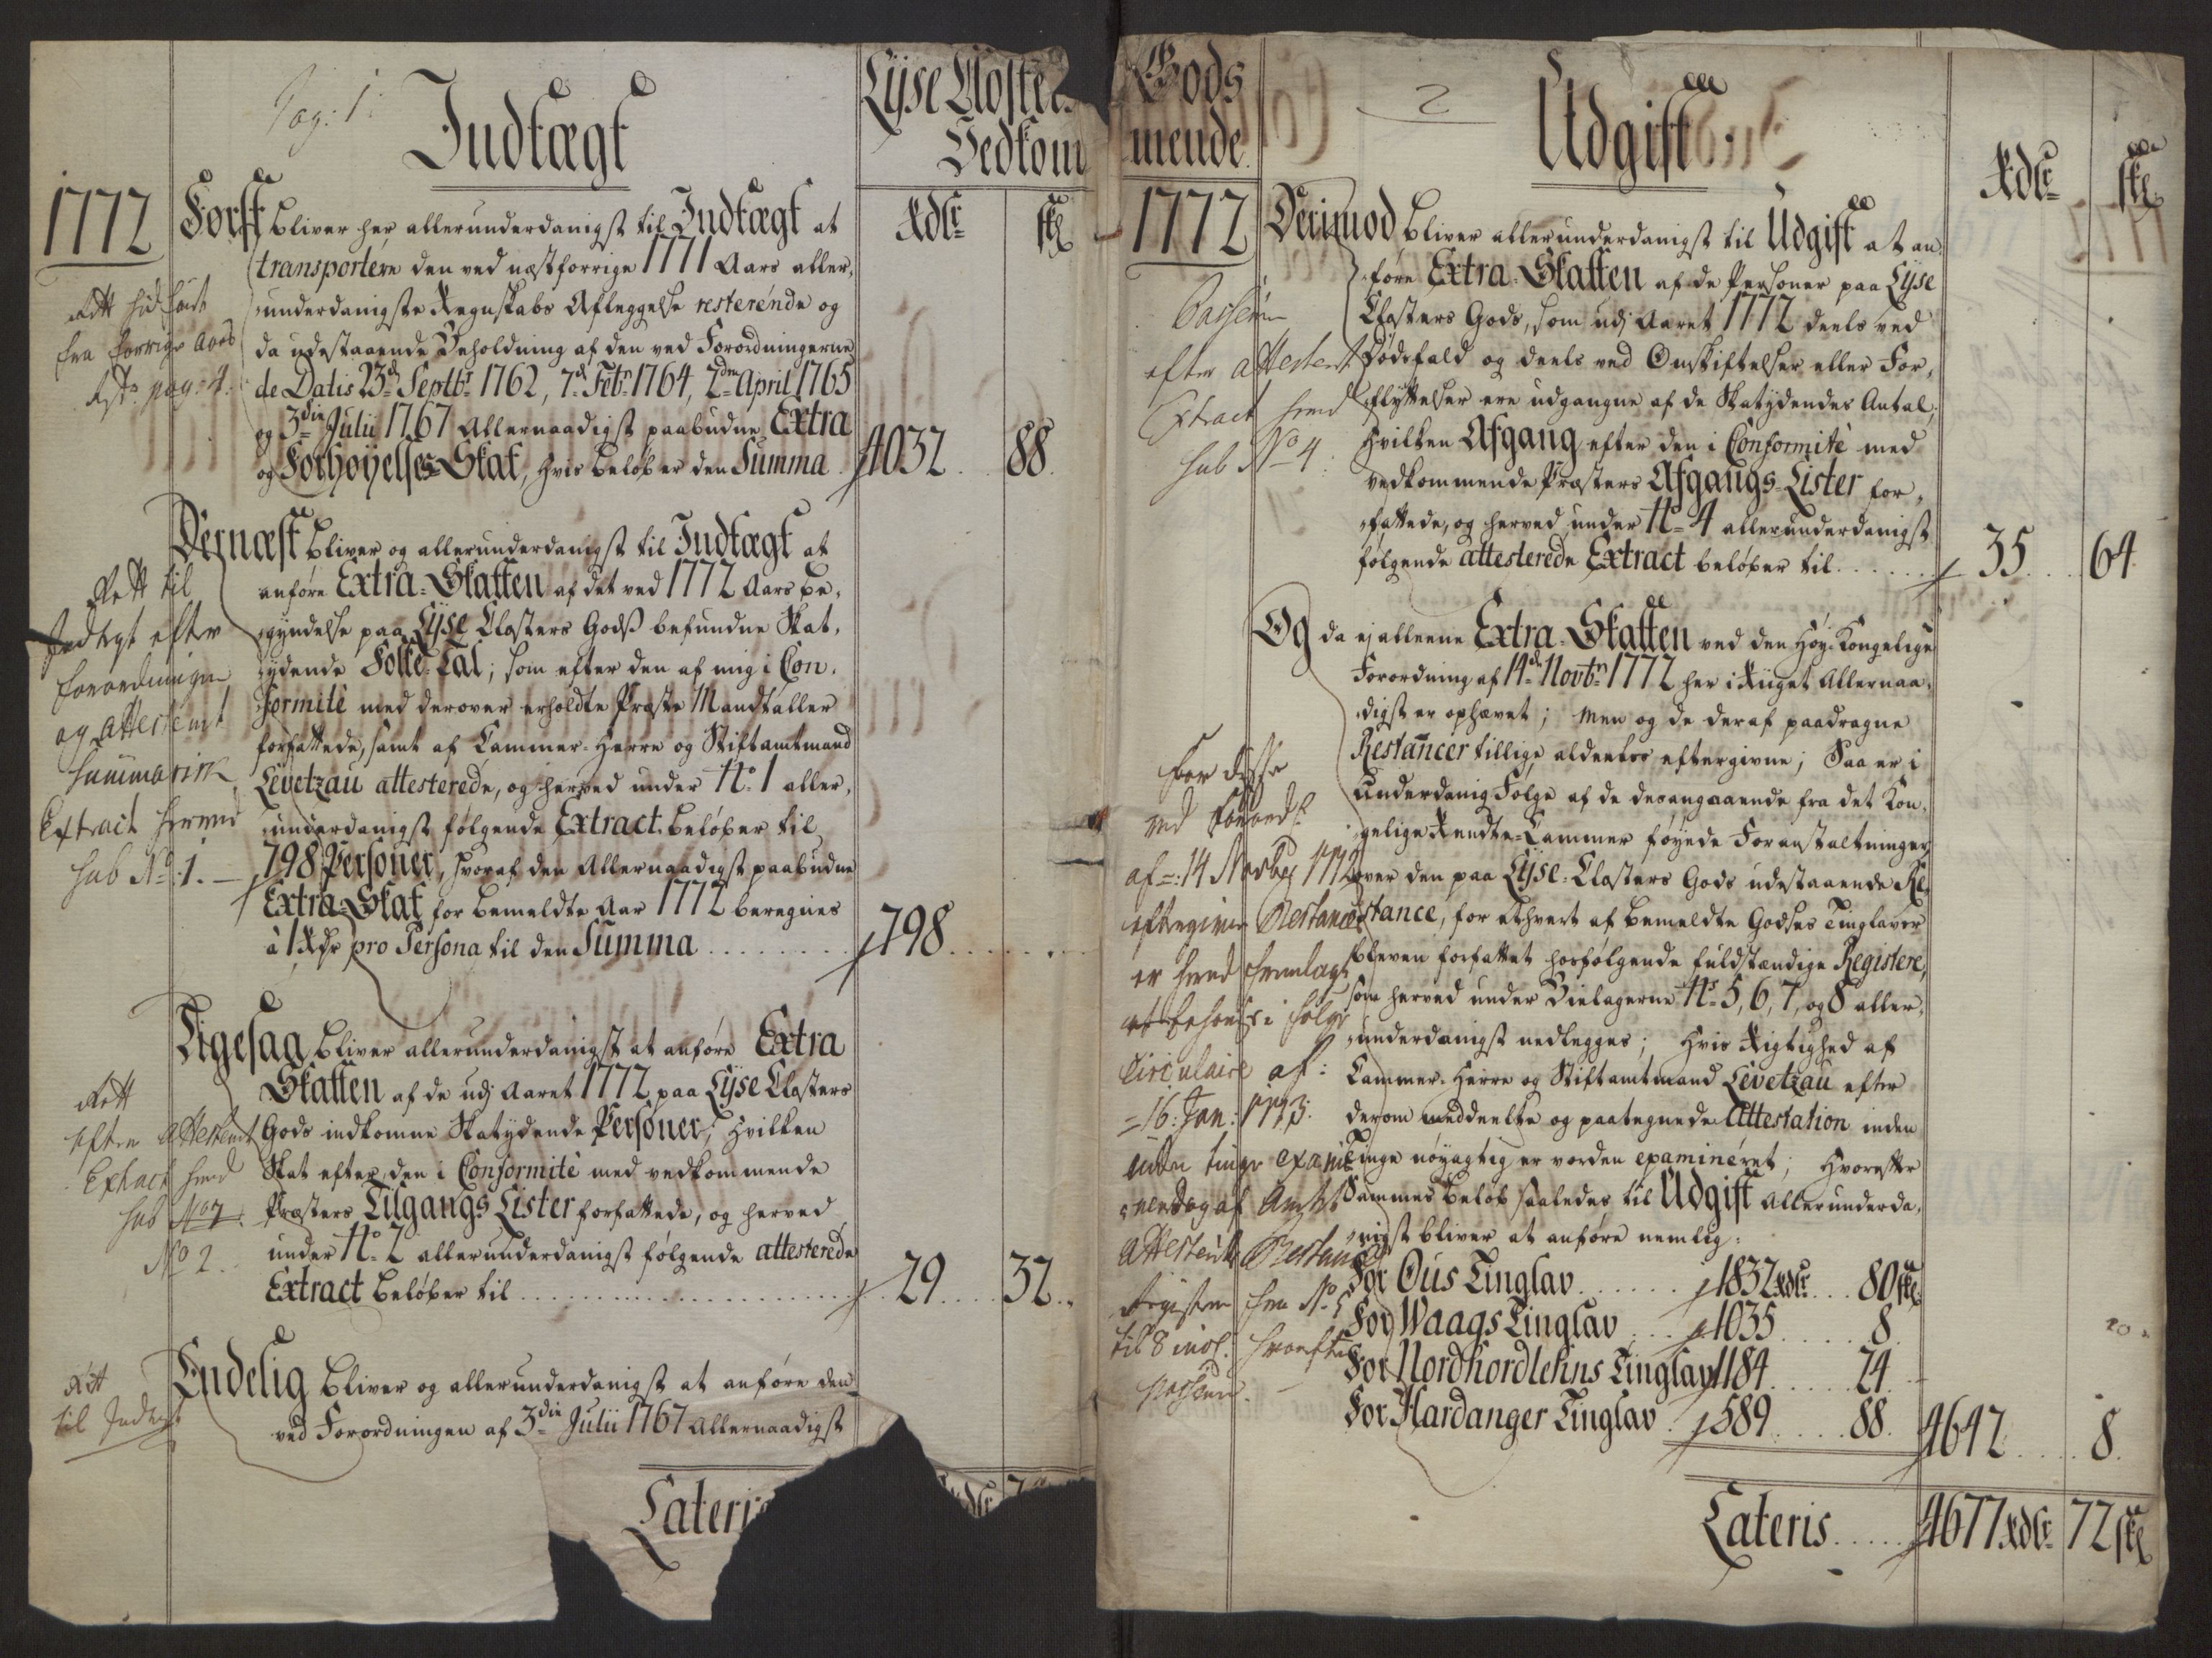 Pag: 1.
Indtægt
Lyse Closters
Vedkom
Rdlr
skl
1772
Først bliver her allerunderdanigst til Indtægt at
transportere den ved næstforrige 1771 Aars aller,
underdanigste Regnskabs Aflæggelse resterende og
da udestaaende Beholdning af den ved Forordningerne
de Datis 23d Septbr 1762, 7d Febr 1764, 2den April 1765
og 3die Julii 1767 Allernaadigst paabudne Extra
og Forhøyelses-Skat, hvis beløb er den Summa 4032 88.
fra forrige Aars
Rest. pag: 4.
Dernæst bliver og allerunderdanigst til Indtægt at
anføre Extra-Skatten af det ved 1772 Aars be,
gyndelse paa Lyse Closters Gods befundne Skat,
ydende Folke-Tal; som efter den af mig i Con,
formitè med derover erholdte Præste Mandtaller
forfattede, samt af Cammer-Herre og Stiftamtmand
Levetzau attesterede, og herved under No 1 aller,
underdanigst følgende Extract beløber til
798 Personer, hvoraf den Allernaadigst paabudne
Extra-Skat for bemeldte Aar 1772 beregnes
à 1 Rdr pro Persona til den Summa ........ 798.....
Rett til
Indtegt efter
forordningen
og Attesteret
summarisk
Extract herved
sub No 1.
Ligesaa bliver allerunderdanigst at anføre Extra
Skatten af de udj Aaret 1772 paa Lyse Closters
Gods indkomne Skatydende Personer, hvilken
Skat efter den i Conformitè med vedkommende
Præsters Tilgangs Lister forfattede, og herved
under No 2 allerunderdanigst følgende attesterede
Extract beløber til ........ 29.... 32..
Rett
efter Attesteret
Extract herved
sub
No 2.
Endelig bliver og allerunderdanigst at anføre den
ved Forordningen af 3die Julii 1767 Allernaadigst
Rett
til Indtegt
Lateris
Gods
mende
2
Udgift
Rdlr
skl
1772
Derimod bliver allerunderdanigst til Udgift at an
føre Extra-Skatten af de Personer paa Lyse
Closters Gods, som udj Aaret 1772 deels ved
Dødsfald og deels ved Omskiftelser eller For,
flyttelser ere udgangne af de Skatydendes Antal,
hvilken Afgang efter den i Conformitè med
vedkommende Præsters Afgangs-Lister for,
fattede, og herved under No 4 allerunderdanigst
følgende attesterede Extract beløber til ...... 35... 64
Passerer
efter Attesteret
Extract herved
sub No 4.
Og da ej alleene Extra-Skatten ved den Høy-Kongelige
Forordning af 14d Novbr 1772 her i Riiget Allernaa,
digst er ophævet; Men og de deraf paadragne
Restancer tillige aldeeles eftergivne; Saa er i
underdanig Følge af de desangaaende fra det Kon,
gelige Rendte-Cammer føyede Foranstaltninger
over den paa Lyse-Closters Gods udestaaende Re,
stance, for ethvert af bemeldte Godses Tinglaver
bleven forfattet hosfølgende fuldstændige Registere,
som herved under Bielagerne No 5, 6, 7, og 8 aller,
underdanigst nedlegges; Hvis Rigtighed af
Cammer-Herre og Stiftamtmand Levetzau efter
derom meddeelte og paategnede Attestation inden
Tinge nøyagtig er vorden examineret; Hvorefter
Sammes beløb saaledes til Udgift Allerunderda,
nigst bliver at anføre nemlig:
For Ous Tinglav ...... 1832 Rdlr... 80 skl
For Waags Tinglav ... 1035..... 8.
For Nordhordlehns Tinglav 1184..... 24.
For Hardanger Tinglav . 589.... 88. 4642.... 8.
For disse
ved Forord.
af 14 Novbr 1772
eftergivne Restancer
er herved fremlagt
i følge
Circulaire af:
16. Jan: 1773.
inden tinge exami
Amtet
Attesterede Restance
Register fra No 5
til 8 incl. hvorefter
passerer.
Lateris..... 4677 Rdlr 72 skl